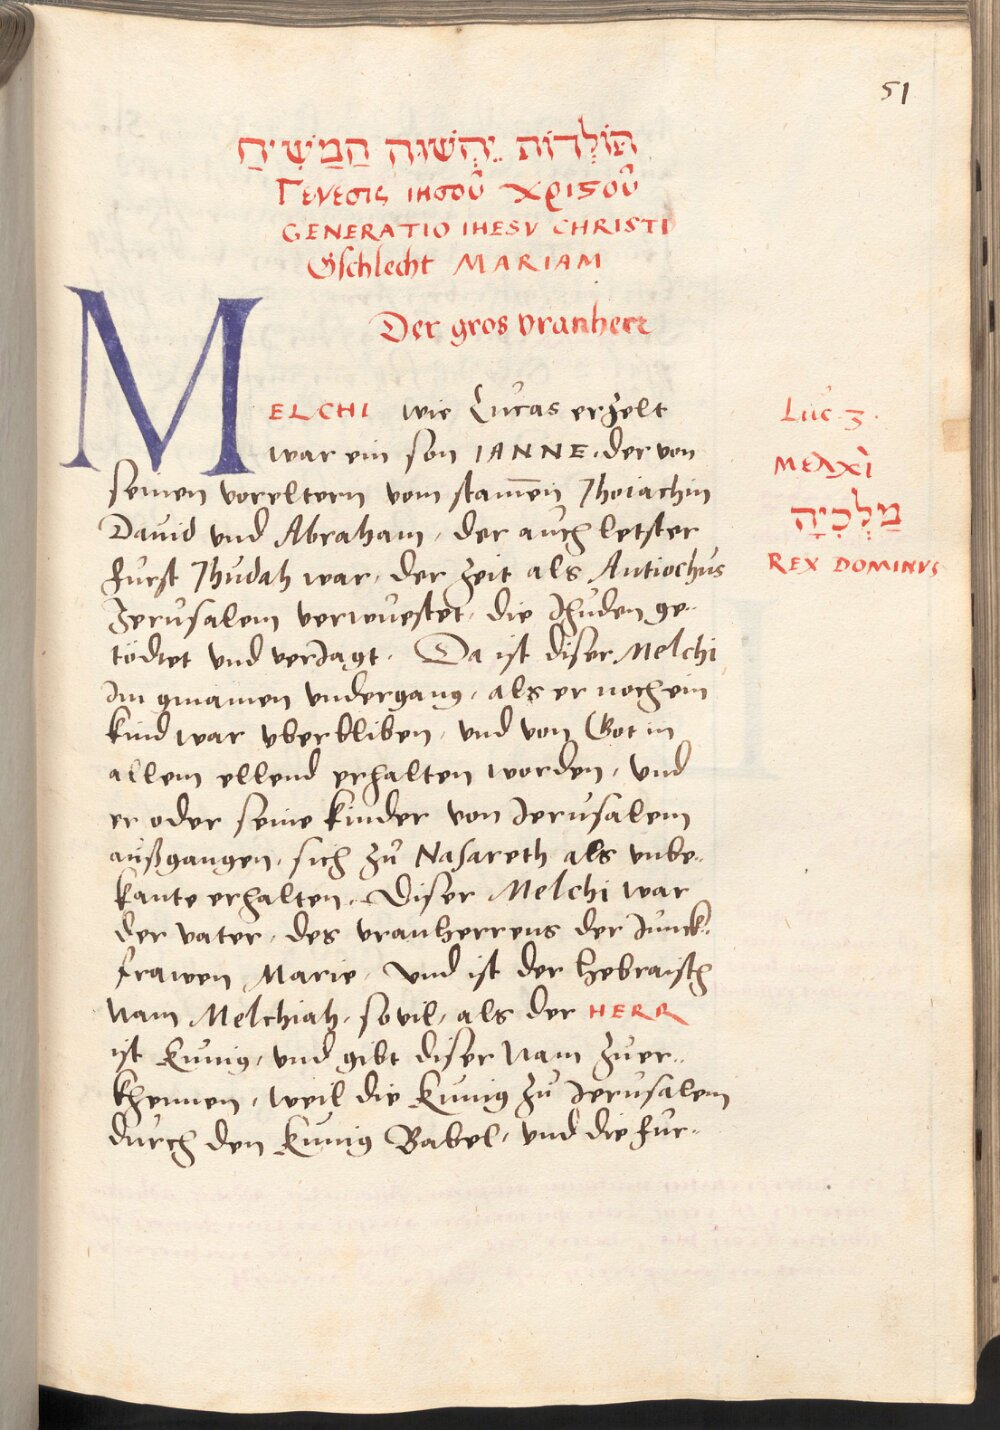 51
תּוֹלְדוֹת יֵהְשׁוּה הַמַשִׁיחַ
Γενεσις ιησοῦ χριϛοῦ
GENERATIO IHESV CHRISTI
Gschlecht MARIAM
Der gros vranherr
MELCHI wie Lucas erzelt
war ein son IANNE. der von
seinen voreltern vom stam̄en Jhoiachin
Dauid vnd Abraham, der auch letster
furst Jhudah war, der zeit als Antiochus
Jerusalem verwuestet, die Jhuden ge-
tödtet vnd verJagt. Da ist diser Melchi
Im gmainen vndergang, als er noch ein
kind war vberbliben, vnd von Got in
allem ellend erhalten worden, vnd
er oder seine kinder von Jerusalem
außgangen, sich zů Nasareth als vnbe-
kante erhalten. Diser Melchi war
der vater, des vranherrens der Junck-
frawen Marie, Vnd ist der hebraisch
Nam Melchiah, so vil, als der HERR
ist Kunig, vnd gibt diser Nam zuer-
khennen, weil die Kunig zů Jerusalem
durch den Kunig Babel, vnd die fur-
Luc. 3.
Μελχὶ
מַלְכִּיָה
REX DOMINVS